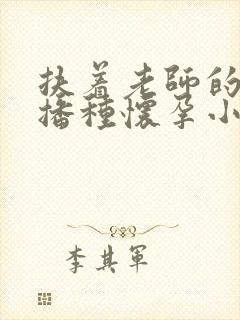 扶着老師的
播種懷孕小
李其軍